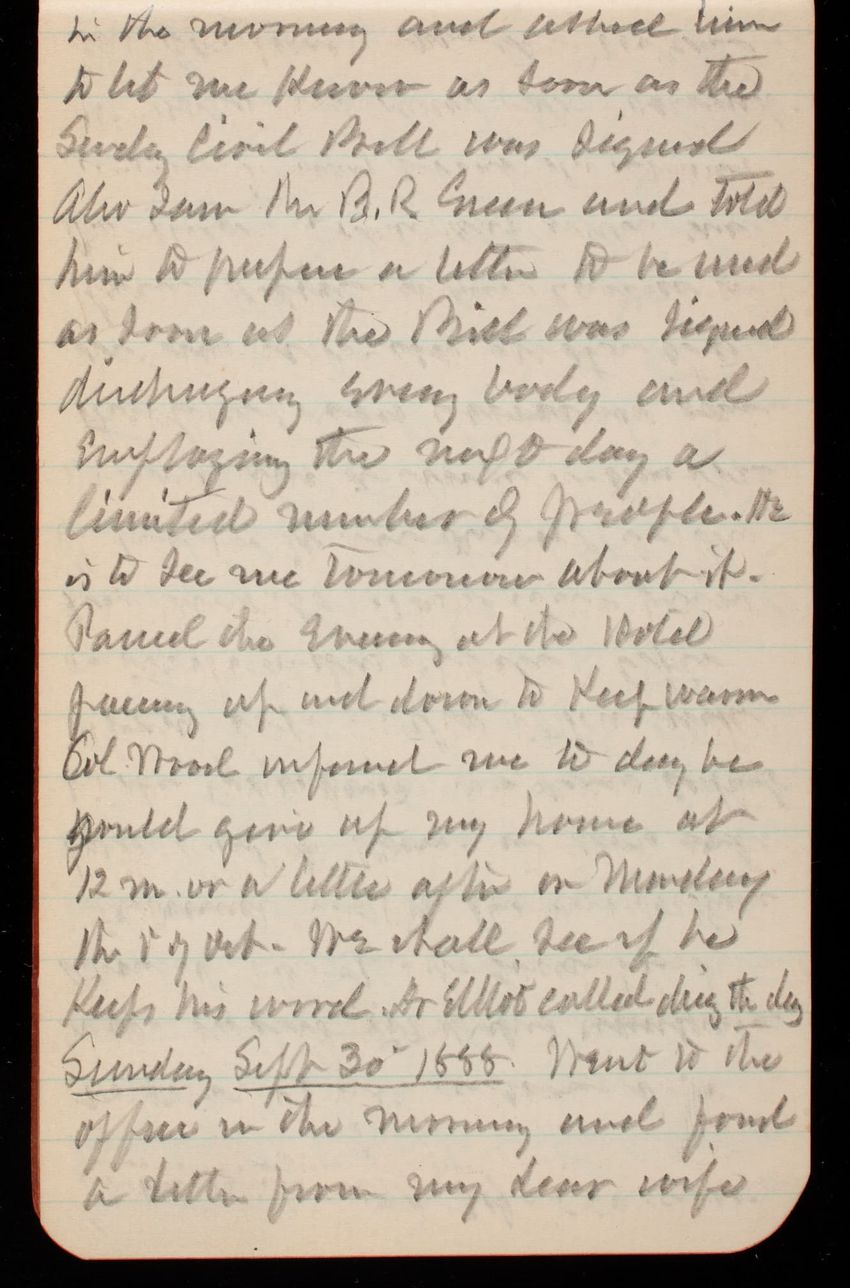 in the morning and asked him
to let me know as soon as the
Sundry Civil Bill was signed
Also saw Mr B. R. Green and told
him to prepare a letter to be used
as soon as the Bill was signed
discharging every body and
Employing the next day a
limited number of people. He
is to see me tomorrow about it.
Passed the Evening at the Hotel
pacing up and down to Keep warm
Col. Wood informed me to day he
would give up my house at
12 m. or a little after on Monday
the of Oct. We shall see if he
Keeps his word. Dr Elliot called durg the day
Sunday Sept 30 1888. Went to the
office in the morning and found
a letter from my dear wife